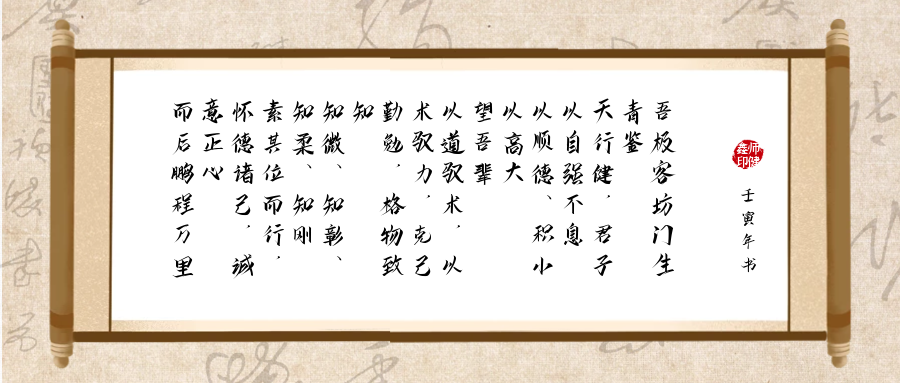 师健鑫印
壬寅年书
吾极客坊门生
青鉴
天行健，君子
以自强不息
以顺德、积小
以高大
望吾辈
以道驭术，以
术驭力，克己
勤勉，格物致
知
知微、知彰、
知柔、知刚
素其位而行，
怀德诸己，诚
意正心
而后鹏程万里